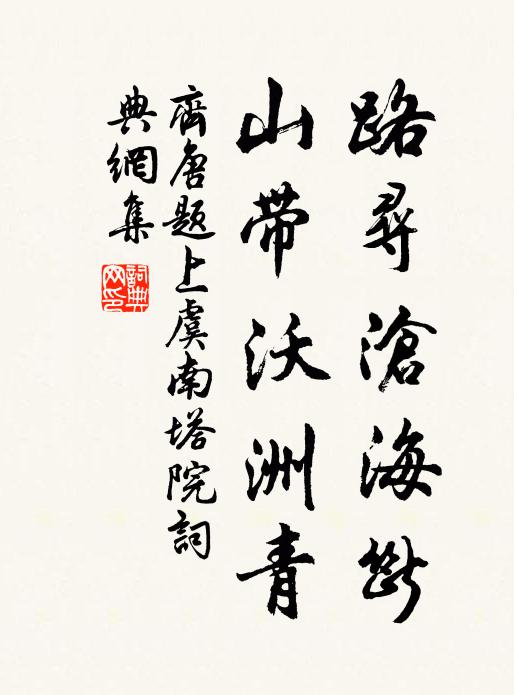 路尋滄海斷
山帶沃洲青
齊唐題上虞南塔院詞
典網集
詞典
网印